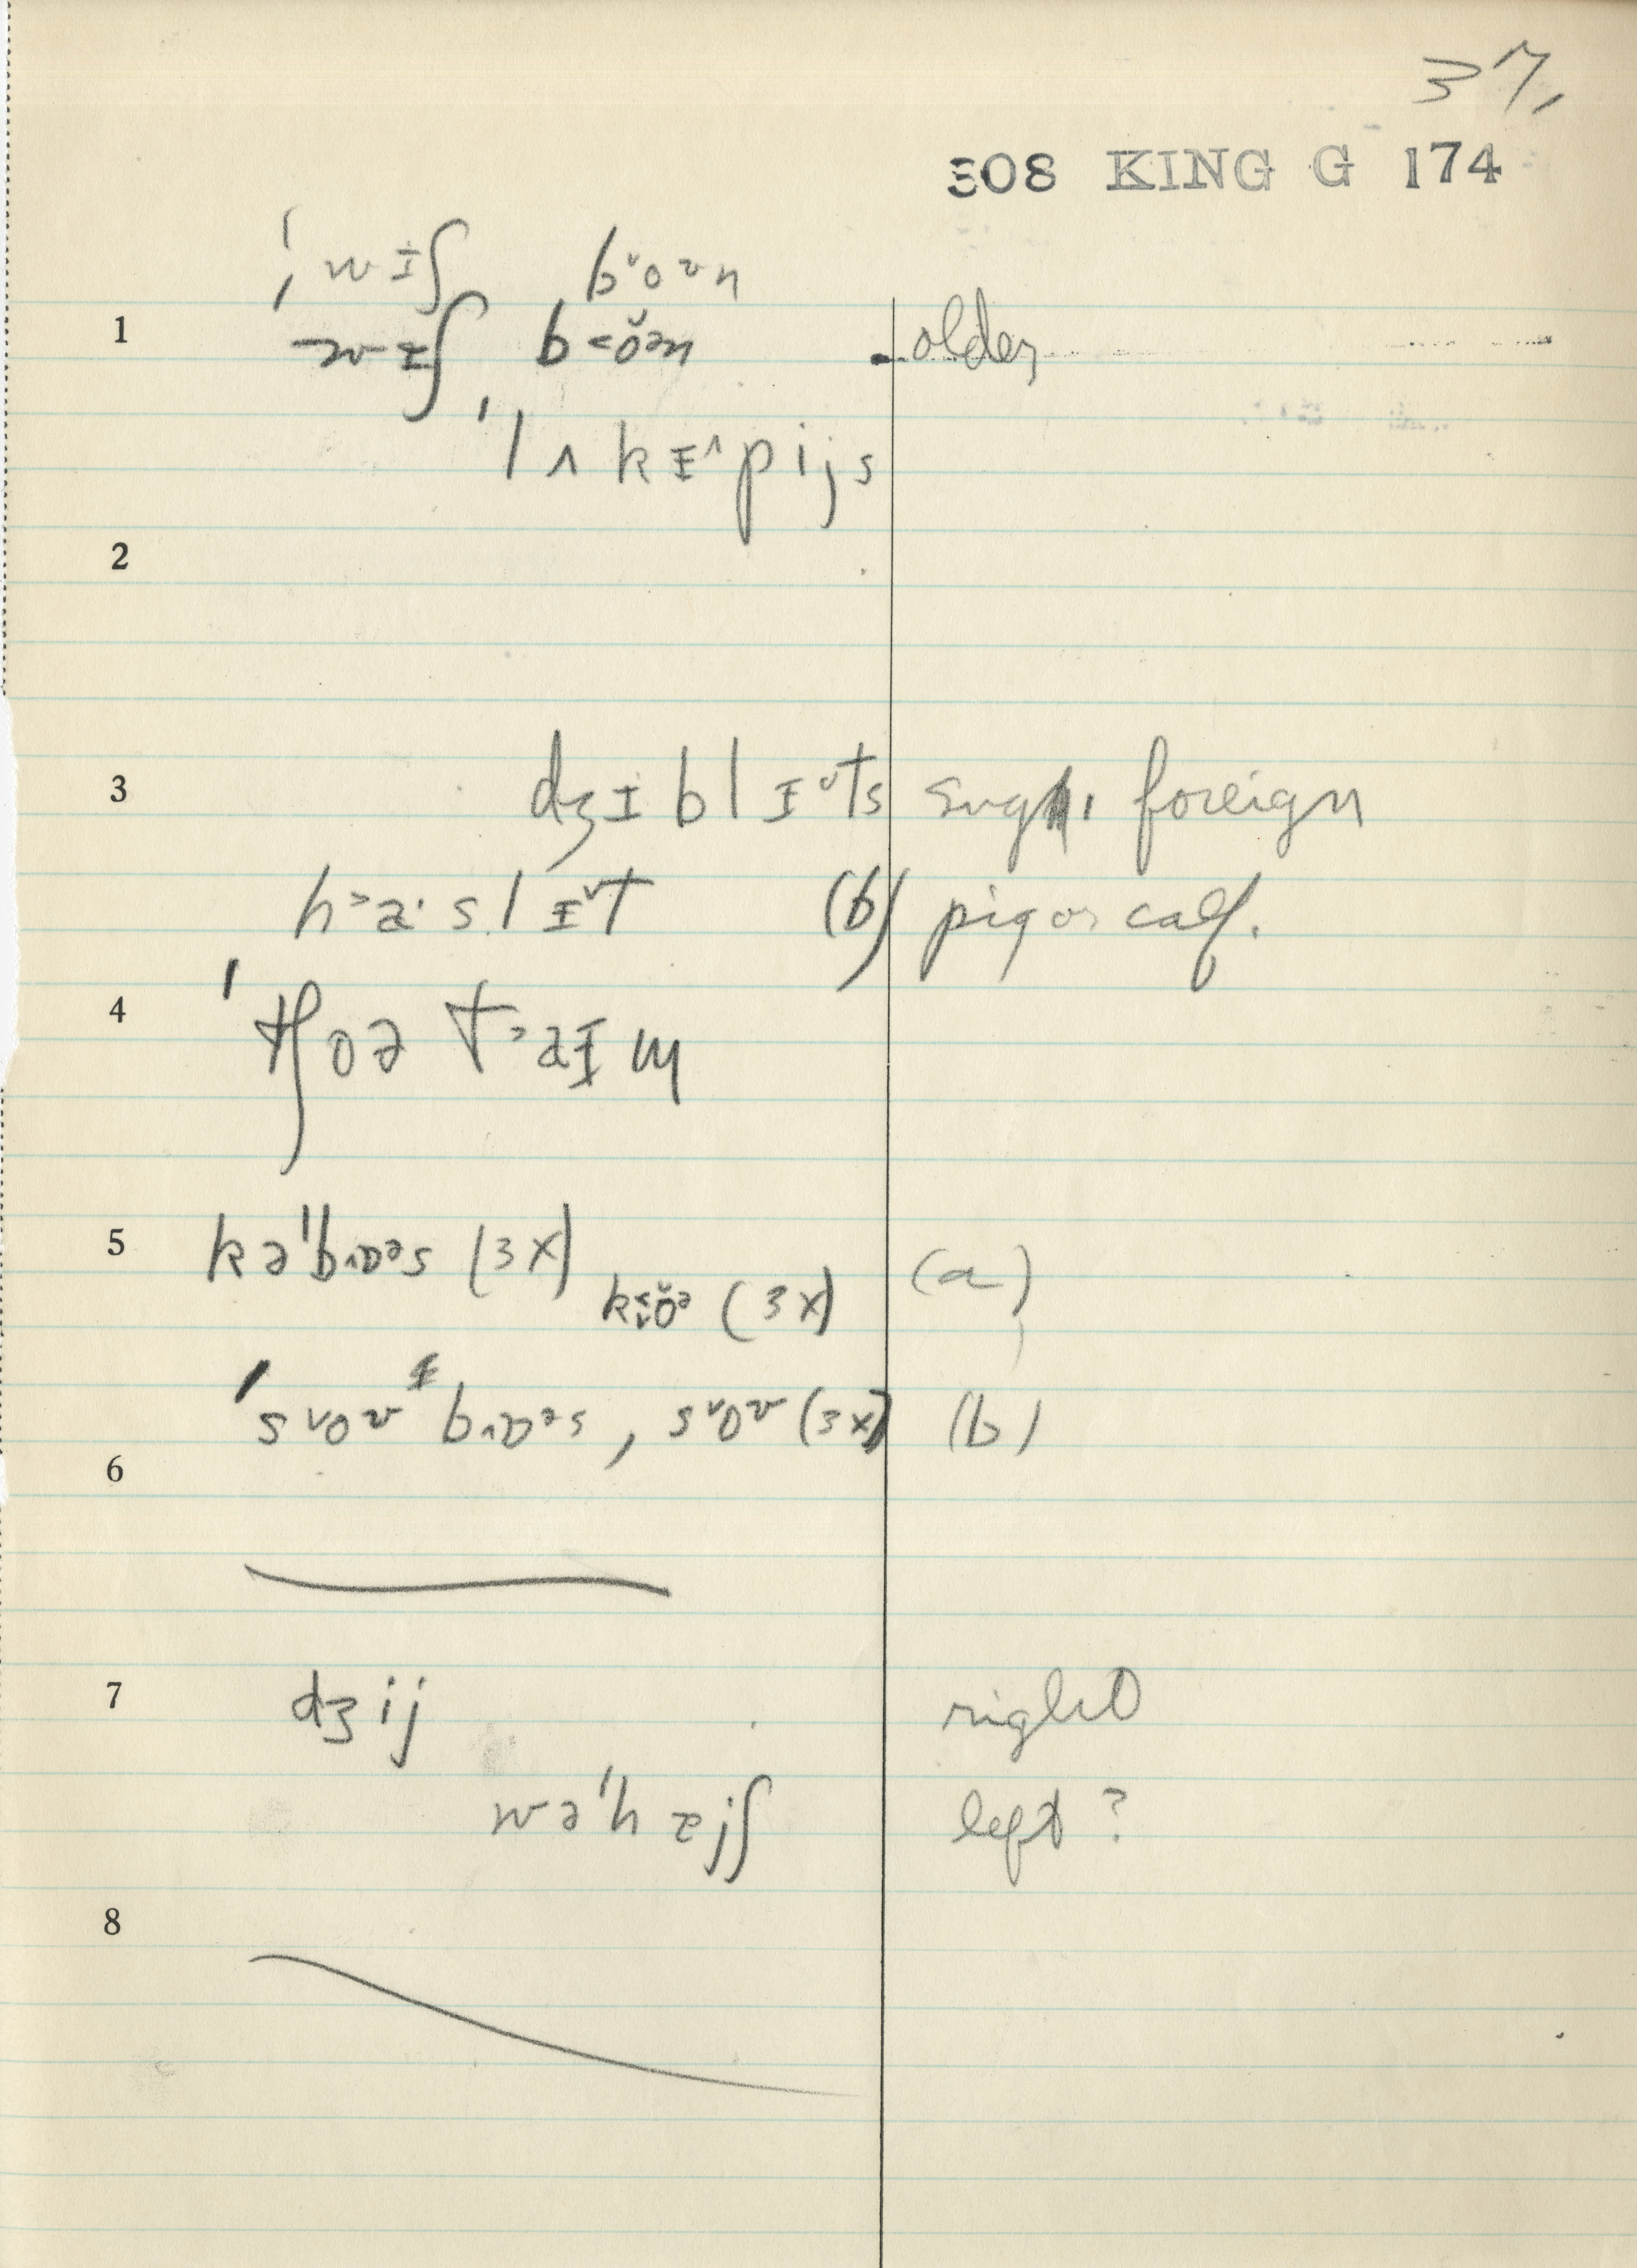 37.
308 KING G 174
ˈwɪʃ b˅oʊn
1 wɪʃ b˂ŏən older,
ˈlʌkɪ^pijs
2
3 dʒɪblɪ˅ts sug. foreign
h˃a·slɪ˅t (b) pig or calf.
4 ˈtʃoə t˃aɪm
5 kəˈbɒəs (3x) (a)
(3x)
ˈs˅oʊ bɒəs, s˅oʊ (3x) (b)
6
7 dʒij right
wəˈh ɪjʃ left ?
8